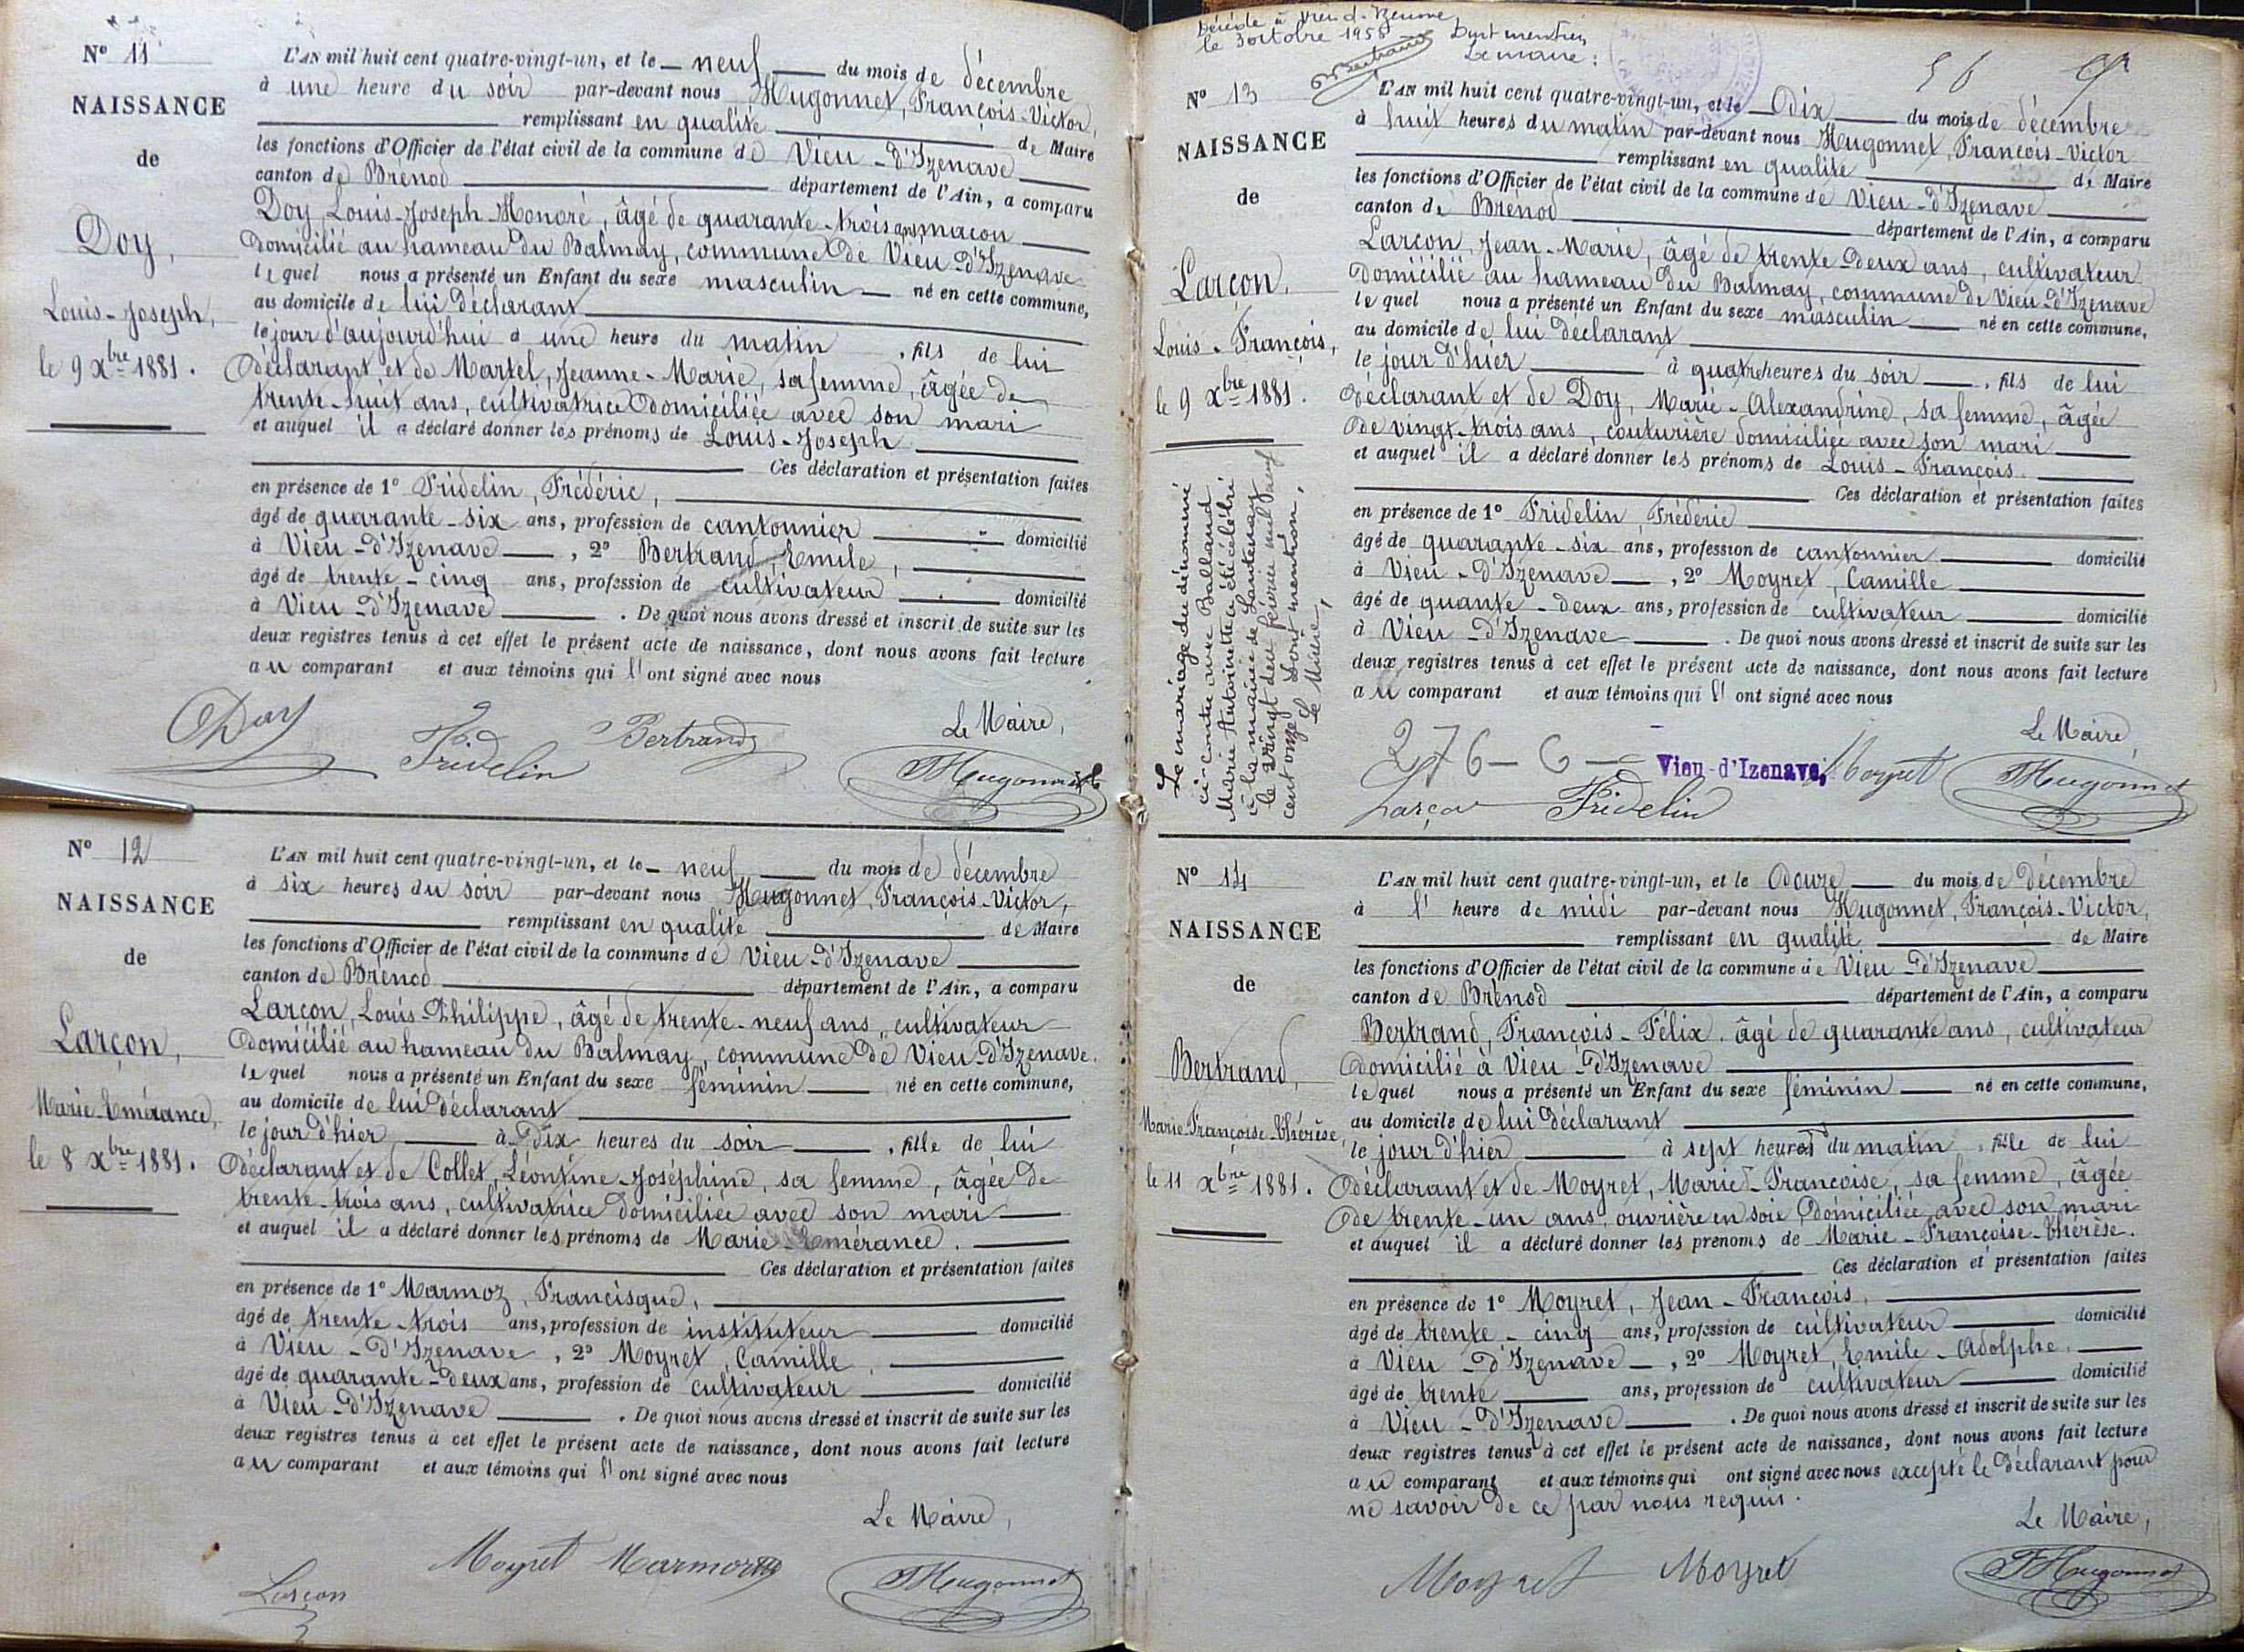 Nº 11
NAISSANCE
de
Doy,
Louis-Joseph,
le 9 Xbre 1881.
L'AN mil huit cent quatre-vingt-un, et le neuf du mois de décembre
à une heure du soir par-devant nous Hugonnet, François-Victor,
remplissant en qualité de Maire
les fonctions d'Officier de l'état civil de la commune de Vieu-d'Izenave
canton de Brénod département de l'Ain, a comparu
Doy, Louis-Joseph-Honoré, âgé de quarante-trois ans maçon
domicilié au hameau du Balmay, commune de Vieu-d'Izenave
lequel nous a présenté un Enfant du sexe masculin né en cette commune,
au domicile de lui déclarant
le jour d'aujourd'hui à une heure du matin, fils de lui
déclarant et de Martel, Jeanne-Marie, sa femme, âgée de
trente-huit ans, cultivatrice domiciliée avec son mari
et auquel il a déclaré donner les prénoms de Louis-Joseph
Ces déclaration et présentation faites
en présence de 1º Fridelin, Frédéric,
âgé de quarante-six ans, profession de cantonnier domicilié
à Vieu-d'Izenave, 2º Bertrand, Emile,
âgé de trente-cinq ans, profession de cultivateur domicilié
à Vieu-d'Izenave. De quoi nous avons dressé et inscrit de suite sur les
deux registres tenus à cet effet le présent acte de naissance, dont nous avons fait lecture
au comparant et aux témoins qui l'ont signé avec nous
Le Maire,
Doy Fridelin Bertrand Hugonnet
Nº 12
NAISSANCE
de
Larçon,
Marie-Emérance,
le 8 Xbre 1881.
L'AN mil huit cent quatre-vingt-un, et le neuf du mois de décembre
à six heures du soir par-devant nous Hugonnet, François-Victor,
remplissant en qualité de Maire
les fonctions d'Officier de l'état civil de la commune de Vieu-d'Izenave
canton de Brénod département de l'Ain, a comparu
Larçon, Louis-Philippe, âgé de trente-neuf ans, cultivateur
domicilié au hameau du Balmay, commune de Vieu-d'Izenave.
lequel nous a présenté un Enfant du sexe féminin né en cette commune,
au domicile de lui déclarant
le jour d'hier à dix heures du soir, fille de lui
déclarant et de Collet, Léontine-Joséphine, sa femme, âgée de
trente-trois ans, cultivatrice domiciliée avec son mari
et auquel il a déclaré donner les prénoms de Marie-Emérance.
Ces déclaration et présentation faites
en présence de 1º Marmoz, Francisque,
âgé de trente-trois ans, profession de instituteur domicilié
à Vieu-d'Izenave, 2º Moyret, Camille,
âgé de quarante-deux ans, profession de cultivateur domicilié
à Vieu-d'Izenave. De quoi nous avons dressé et inscrit de suite sur les
deux registres tenus à cet effet le présent acte de naissance, dont nous avons fait lecture
au comparant et aux témoins qui l'ont signé avec nous
Le Maire,
Larçon Moyret Marmoz Hugonnet
Décédé à Vieu d'Izenave
le 3 octobre 1958 Dont mention
Le maire:
Bertrand
56
Nº 13
NAISSANCE
de
Larçon,
Louis-François,
le 9 Xbre 1881.
Le mariage du dénommé
ci-contre avec Balland
Marie Antoinette a été célébré
à la mairie de Lantenay
le vingt deux février mil neuf
cent onze. Dont mention,
Le Maire,
L'AN mil huit cent quatre-vingt-un, et le Dix du mois de décembre
à huit heures du matin par-devant nous Hugonnet, François-Victor
remplissant en qualité de Maire
les fonctions d'Officier de l'état civil de la commune de Vieu-d'Izenave
canton de Brénod département de l'Ain, a comparu
Larçon, Jean-Marie, âgé de trente-deux ans, cultivateur
domicilié au hameau du Balmay, commune de Vieu-d'Izenave
lequel nous a présenté un Enfant du sexe masculin né en cette commune,
au domicile de lui déclarant
le jour d'hier à quatre heures du soir, fils de lui
déclarant et de Doy, Marie-Alexandrine, sa femme, âgée
de vingt-trois ans, couturière domiciliée avec son mari
et auquel il a déclaré donner les prénoms de Louis-François.
Ces déclaration et présentation faites
en présence de 1º Fridelin, Frédéric
âgé de quarante-six ans, profession de cantonnier domicilié
à Vieu-d'Izenave, 2º Moyret, Camille
âgé de quante-deux ans, profession de cultivateur domicilié
à Vieu-d'Izenave. De quoi nous avons dressé et inscrit de suite sur les
deux registres tenus à cet effet le présent acte de naissance, dont nous avons fait lecture
au comparant et aux témoins qui l'ont signé avec nous
Le Maire,
276-6- Vieu-d'Izenave,
Larçon Fridelin Moyret Hugonnet
Nº 14
NAISSANCE
de
Bertrand,
Marie-Françoise-Thérèse,
le 11 Xbre 1881.
L'AN mil huit cent quatre-vingt-un, et le Douze du mois de décembre
à l' heure de midi par-devant nous Hugonnet, François-Victor,
remplissant en qualité de Maire
les fonctions d'Officier de l'état civil de la commune de Vieu-d'Izenave
canton de Brénod département de l'Ain, a comparu
Bertrand, François-Félix, âgé de quarante ans, cultivateur
domicilié à Vieu-d'Izenave
lequel nous a présenté un Enfant du sexe féminin né en cette commune,
au domicile de lui déclarant
le jour d'hier à sept heures du matin, fille de lui
déclarant et de Moyret, Marie-Françoise, sa femme, âgée
de trente-un ans, ouvrière en soie, domiciliée avec son mari
et auquel il a déclaré donner les prénoms de Marie-Françoise-Thérèse.
Ces déclaration et présentation faites
en présence de 1º Moyret, Jean-François,
âgé de trente-cinq ans, profession de cultivateur domicilié
à Vieu-d'Izenave, 2º Moyret, Emile-Adolphe,
âgé de trente ans, profession de cultivateur domicilié
à Vieu-d'Izenave. De quoi nous avons dressé et inscrit de suite sur les
deux registres tenus à cet effet le présent acte de naissance, dont nous avons fait lecture
au comparant et aux témoins qui ont signé avec nous excepté le déclarant pour
ne savoir de ce par nous requis.
Le Maire,
Moyret Moyret Hugonnet